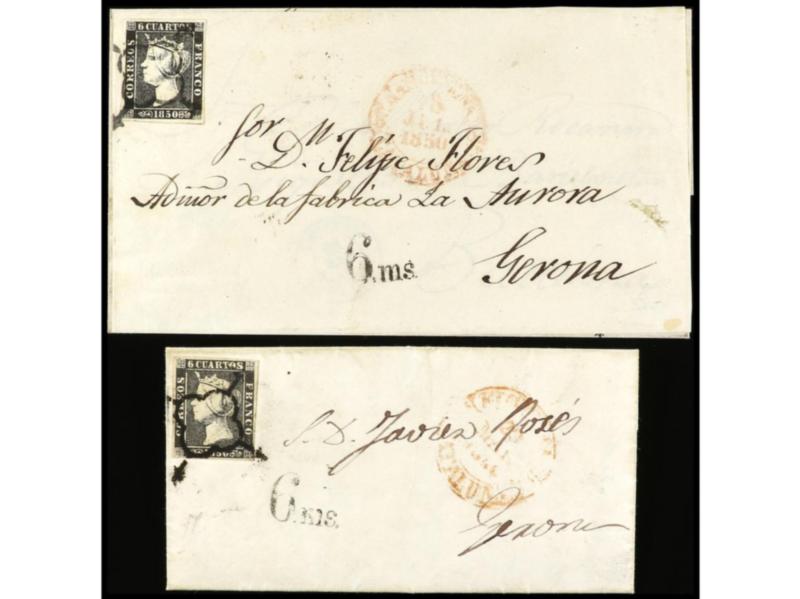 6 CUARTOS
CORREOS
FRANCO
1850
28
JUL
1850
Sor. M.
D. Felipe Flores
Admor de la fabrica La Aurora
Gerona
6.ms.
6 CUARTOS
CORREOS
FRANCO
S. D. Javier Rosés
Gerona
6.ms.